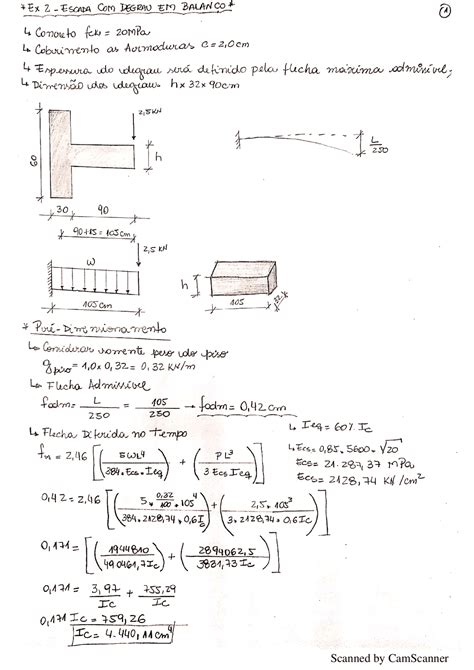 * Ex 2 - ESCADA COM DEGRAU EM BALANÇO *
1
↳ Concreto fck = 20MPa
↳ Cobrimento as Armaduras c = 2,0cm
↳ Espessura do degrau será definido pela flecha máxima admissível;
↳ Dimensão dos degraus h x 32 x 90cm
2,5KN
60
h
L
250
30 90
90+15 = 105cm
2,5 KN
W
h
105cm
105
32
* Pré-Dimensionamento
↳ Considerar somente peso do piso
gpiso = 1,0 x 0,32 = 0,32 KN/m
↳ Flecha Admissível
fadm = L/250 = 105/250 → fadm = 0,42 cm
↳ Ieq = 60% Ic
↳ Flecha Diferida no Tempo
↳ Ecs = 0,85.5600.√20
Ecs = 21.287,37 MPa
Ecs = 2128,74 KN/cm²
f∞ = 2,46 [(5WL⁴/384.Ecs.Ieq) + (PL³/3EcsIeq)]
0,42 = 2,46 [(5.0,32/100.105⁴/384.2128,74.0,6Ic) + (2,5.105³/3.2128,74.0,6Ic)]
0,171 = [(1944810/490461,7Ic) + (2894062,5/3831,73Ic)]
0,171 = 3,97/Ic + 755,29/Ic
0,171 Ic = 759,26
Ic = 4.440,11cm⁴
Scanned by CamScanner